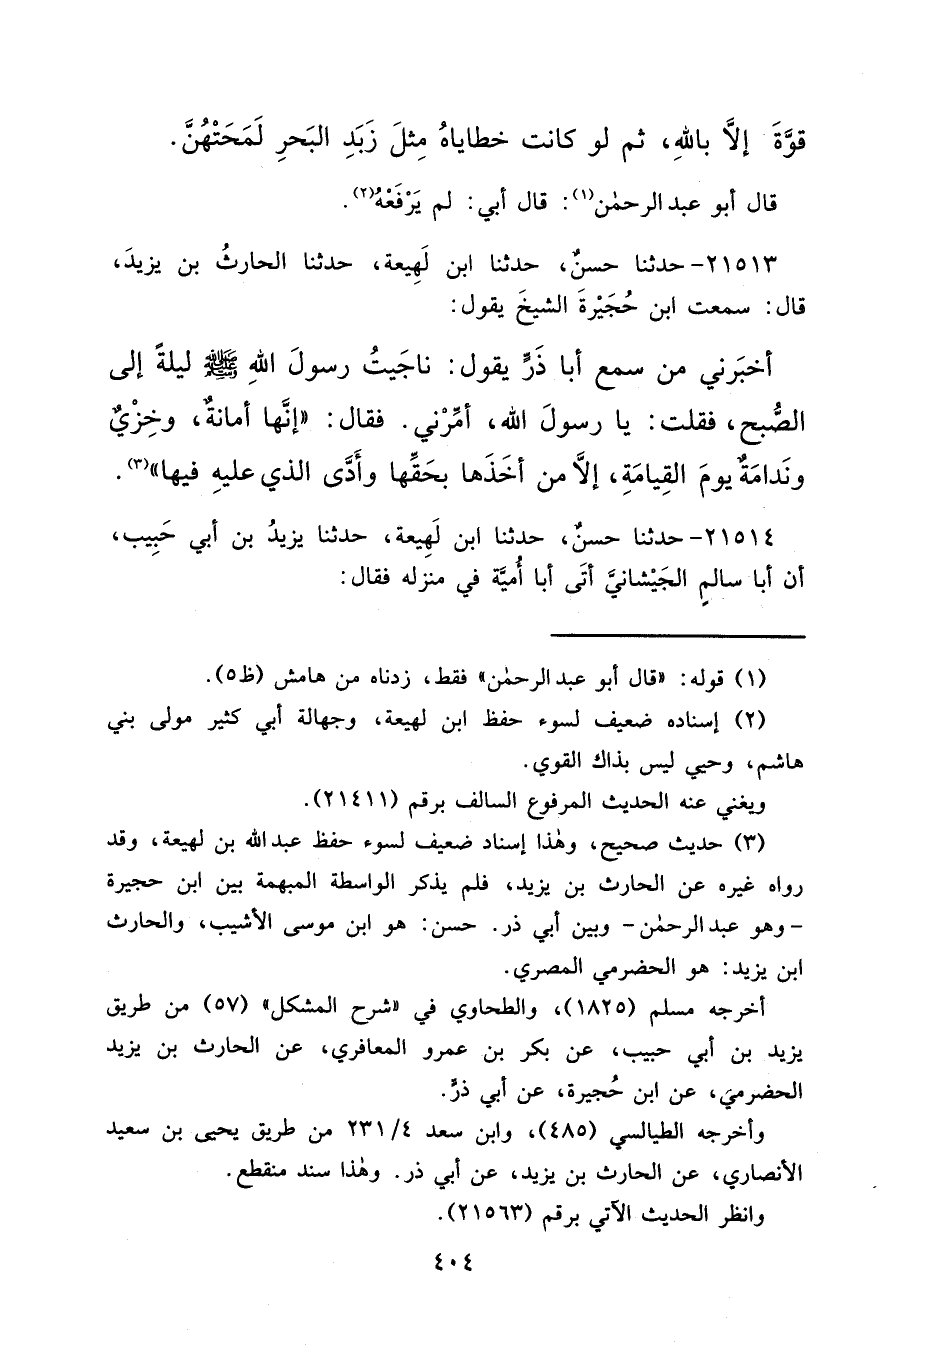 قوَّةَ إلاَّ باللهِ، ثم لو كانت خطاياهُ مِثلَ زَبَدِ البَحرِ لَمَحَتْهُنَّ.
قال أبو عبد الرحمٰن(١): قال أبي: لم يَرْفَعْهُ(٢).
٢١٥١٣- حدثنا حسنٌ، حدثنا ابن لَهِيعة، حدثنا الحارثُ بن يزيدَ،
قال: سمعت ابن حُجَيْرةَ الشيخَ يقول:
أخبَرني من سمع أبا ذَرٍّ يقول: ناجَيتُ رسولَ اللهِ ﷺ ليلةً إلى
الصُّبح، فقلت: يا رسولَ الله، أمِّرْني. فقال: «إنَّها أمانةٌ، وخِزْيٌ
ونَدامَةٌ يومَ القِيامَةِ، إلاَّ من أخَذَها بحَقِّها وأدَّى الذي عليهِ فيها»(٣).
٢١٥١٤- حدثنا حسنٌ، حدثنا ابن لَهِيعة، حدثنا يزيدُ بن أبي حَبِيب،
أن أبا سالمٍ الجَيْشانيَّ أتَى أبا أُميَّة في منزله فقال:
(١) قوله: «قال أبو عبد الرحمٰن» فقط، زدناه من هامش (ظ٥).
(٢) إسناده ضعيف لسوء حفظ ابن لهيعة، وجهالة أبي كثير مولى بني
هاشم، وحيي ليس بذاك القوي.
ويغني عنه الحديث المرفوع السالف برقم (٢١٤١١).
(٣) حديث صحيح، وهٰذا إسناد ضعيف لسوء حفظ عبد الله بن لهيعة، وقد
رواه غيره عن الحارث بن يزيد، فلم يذكر الواسطة المبهمة بين ابن حجيرة
- وهو عبد الرحمٰن - وبين أبي ذر. حسن: هو ابن موسى الأشيب، والحارث
ابن يزيد: هو الحضرمي المصري.
أخرجه مسلم (١٨٢٥)، والطحاوي في «شرح المشكل» (٥٧) من طريق
يزيد بن أبي حبيب، عن بكر بن عمرو المعافري، عن الحارث بن يزيد
الحضرمي، عن ابن حُجيرة، عن أبي ذرٍّ.
وأخرجه الطيالسي (٤٨٥)، وابن سعد ٢٣١/٤ من طريق يحيى بن سعيد
الأنصاري، عن الحارث بن يزيد، عن أبي ذر. وهٰذا سند منقطع.
وانظر الحديث الآتي برقم (٢١٥٦٣).
٤٠٤